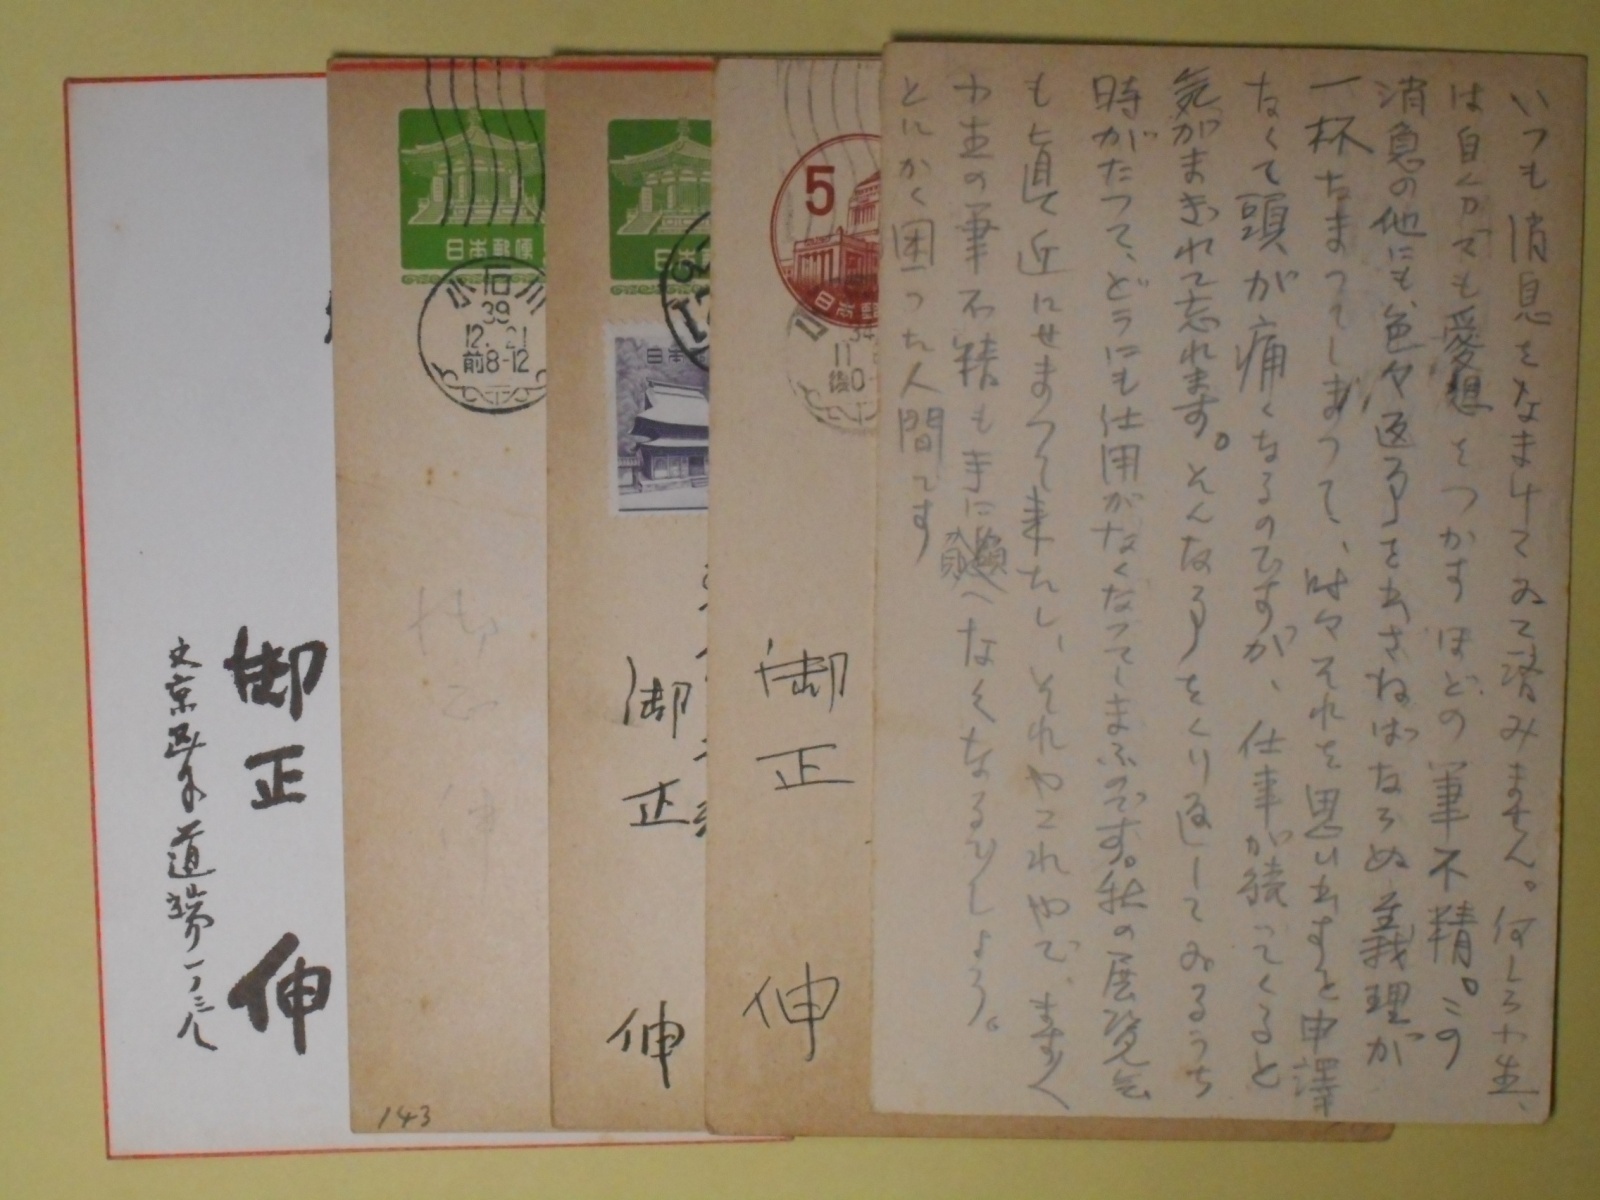 いつも消息をなまけてゐて済みません。何しろ小生、
は自分でも愛想をつかすほどの筆不精。この
消息の他にも、色々返事を出さねばならぬ義理が
一杯たまつてしまつて、時々それを思い出すと申譯
なくて頭が痛くなるのですが、仕事が続つてくると
気がまぎれて忘れます。そんな事をくり返してゐるうち
時がたつて、どうにも仕用がなくなつてしまふのです。秋の展覧会
も真近にせまつて来たし、それやこれやで、ますく
小生の筆不精も手に負へなくなるでしよう。
とにかく困つた人間です
5
日本郵
34
11
後0-
御正 伸
日本郵
日本
御正 伸
日本郵便
小石川
39
12.21
前8-12
御正伸
143
御正 伸
文京区水道端一ノ三八